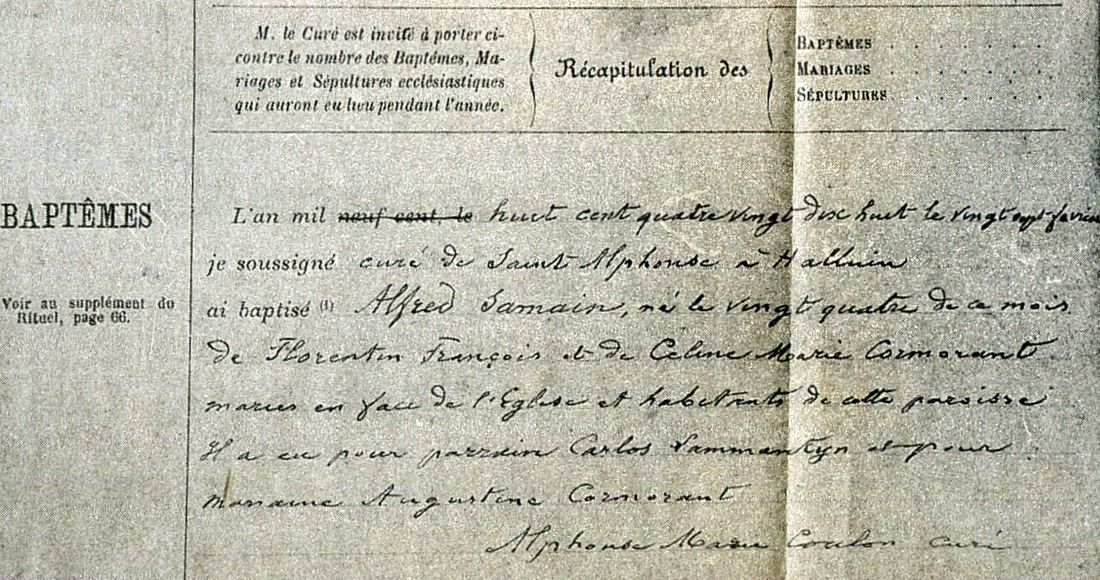 M. le Curé est invité à porter ci-
contre le nombre des Baptêmes, Ma-
riages et Sépultures ecclésiastiques
qui auront eu lieu pendant l'année.
Récapitulation des
BAPTÊMES . . . . . . .
MARIAGES . . . . . . .
SÉPULTURES . . . . . .
BAPTÊMES
Voir au supplément du
Rituel, page 66.
L'an mil neuf cent, le huit cent quatre vingt dix huit le vingt sept février
je soussigné curé de Saint Alphonse à Halluin
ai baptisé (1) Alfred Samain, né le vingt quatre de ce mois
de Florentin François et de Celine Marie Cormorant
maries en face de l'Eglise et habitants de cette paroisse
Il a eu pour parrain Carlos et pour
marraine Augustine Cormorant
Alphonse Marie Coulon curé